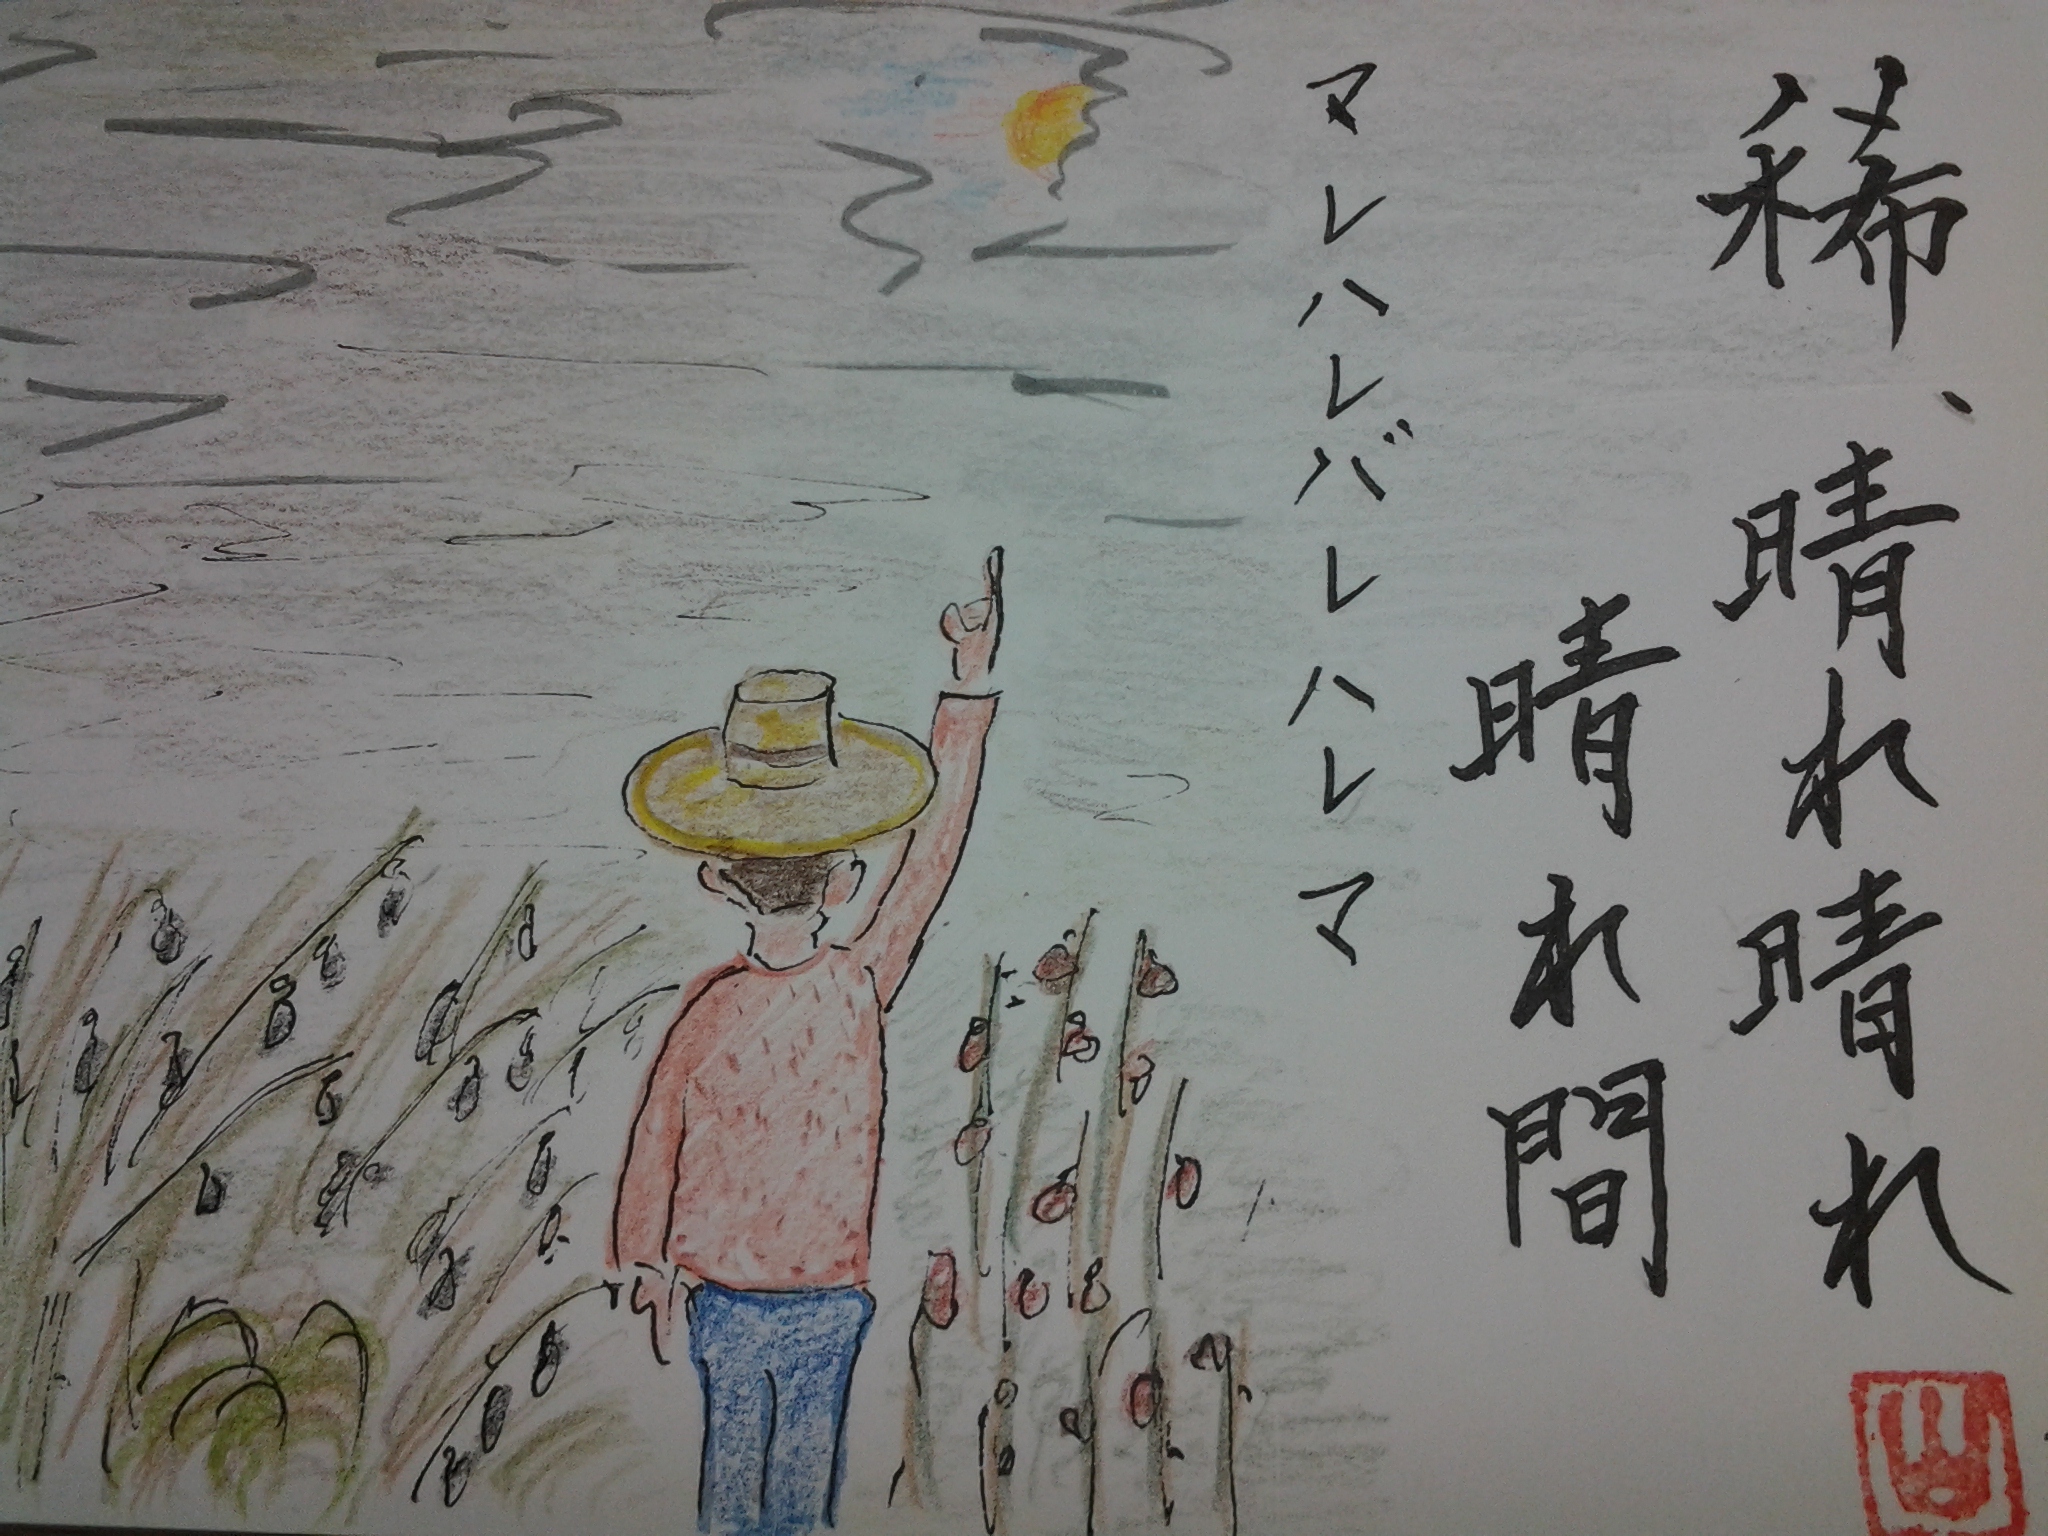 稀、晴れ晴れ
晴れ間
マレハレバレハレマ